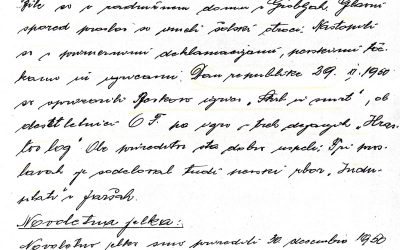 bile so v zadružnem domu v Grobljah. Glavni
spored proslav so imeli šolski otroci. Nastopili
so s primernimi deklamacijami, pevskimi točkami
in igricami. Dan republike 29. II. 1950
so upriz Roškovo igro, "Skrb in smrt", ob
desetletnici O F. pa igro v treh dejanjih "Hrastov
log" Obe prireditvi sta dobro uspeli. Pri proslavah
je sodeloval tudi pevski zbor "Induplati"
v Jaršah.
Novoletna jelka:
Novoletno jelko smo priredili 30 decembra 1950